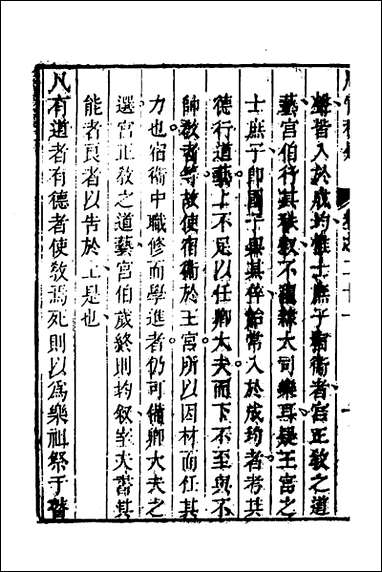 聲皆入於成均惟士庶子宿衞者宮正教之道
藝宮伯行其秩叙不隸大司樂耳疑王宮之
士庶子卽國子與其倅始常入於成均者考其
德行道藝上不足以任卿大夫而下不至與不
帥教者等故使宿衞於王宮所以因材而任其
力也宿衞中職修而學進者仍可備卿大夫之
選宮正教之道藝宮伯歲終則均叙宰夫書其
能者良者以告於上是也
凡有道者有德者使教焉死則以爲樂祖祭于瞽